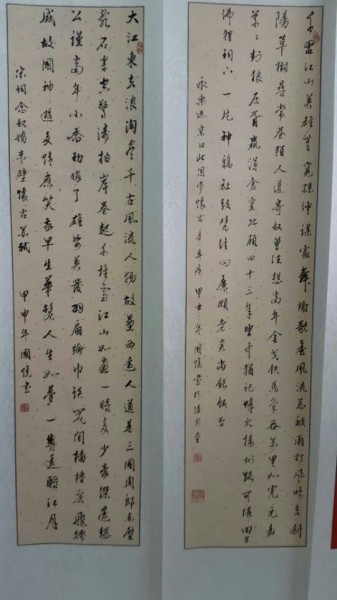 千古江山英雄無覓孫仲謀處舞榭歌臺風流總被雨打風吹去斜
陽草樹尋常巷陌人道寄奴曾住想當年金戈鐵馬氣吞萬里如虎元嘉
草草封狼居胥贏得倉皇北顧四十三年望中猶記烽火揚州路可堪回首
佛狸祠下一片神鴉社鼓憑誰問廉頗老矣尚能飯否
永樂遇京口北固亭懷古辛棄疾 甲申年國憶書於
大江東去浪淘盡千古風流人物故壘西邊人道是三國周郎赤壁
亂石穿空驚濤拍岸卷起千堆雪江山如畫一時多少豪傑遙想
公瑾當年小喬初嫁了雄姿英發羽扇綸巾談笑間檣櫓灰飛煙
滅故國神遊多情應笑我早生華髮人生如夢一尊還酹江月
宋詞念奴嬌赤壁懷古蘇軾 甲申年國憶書